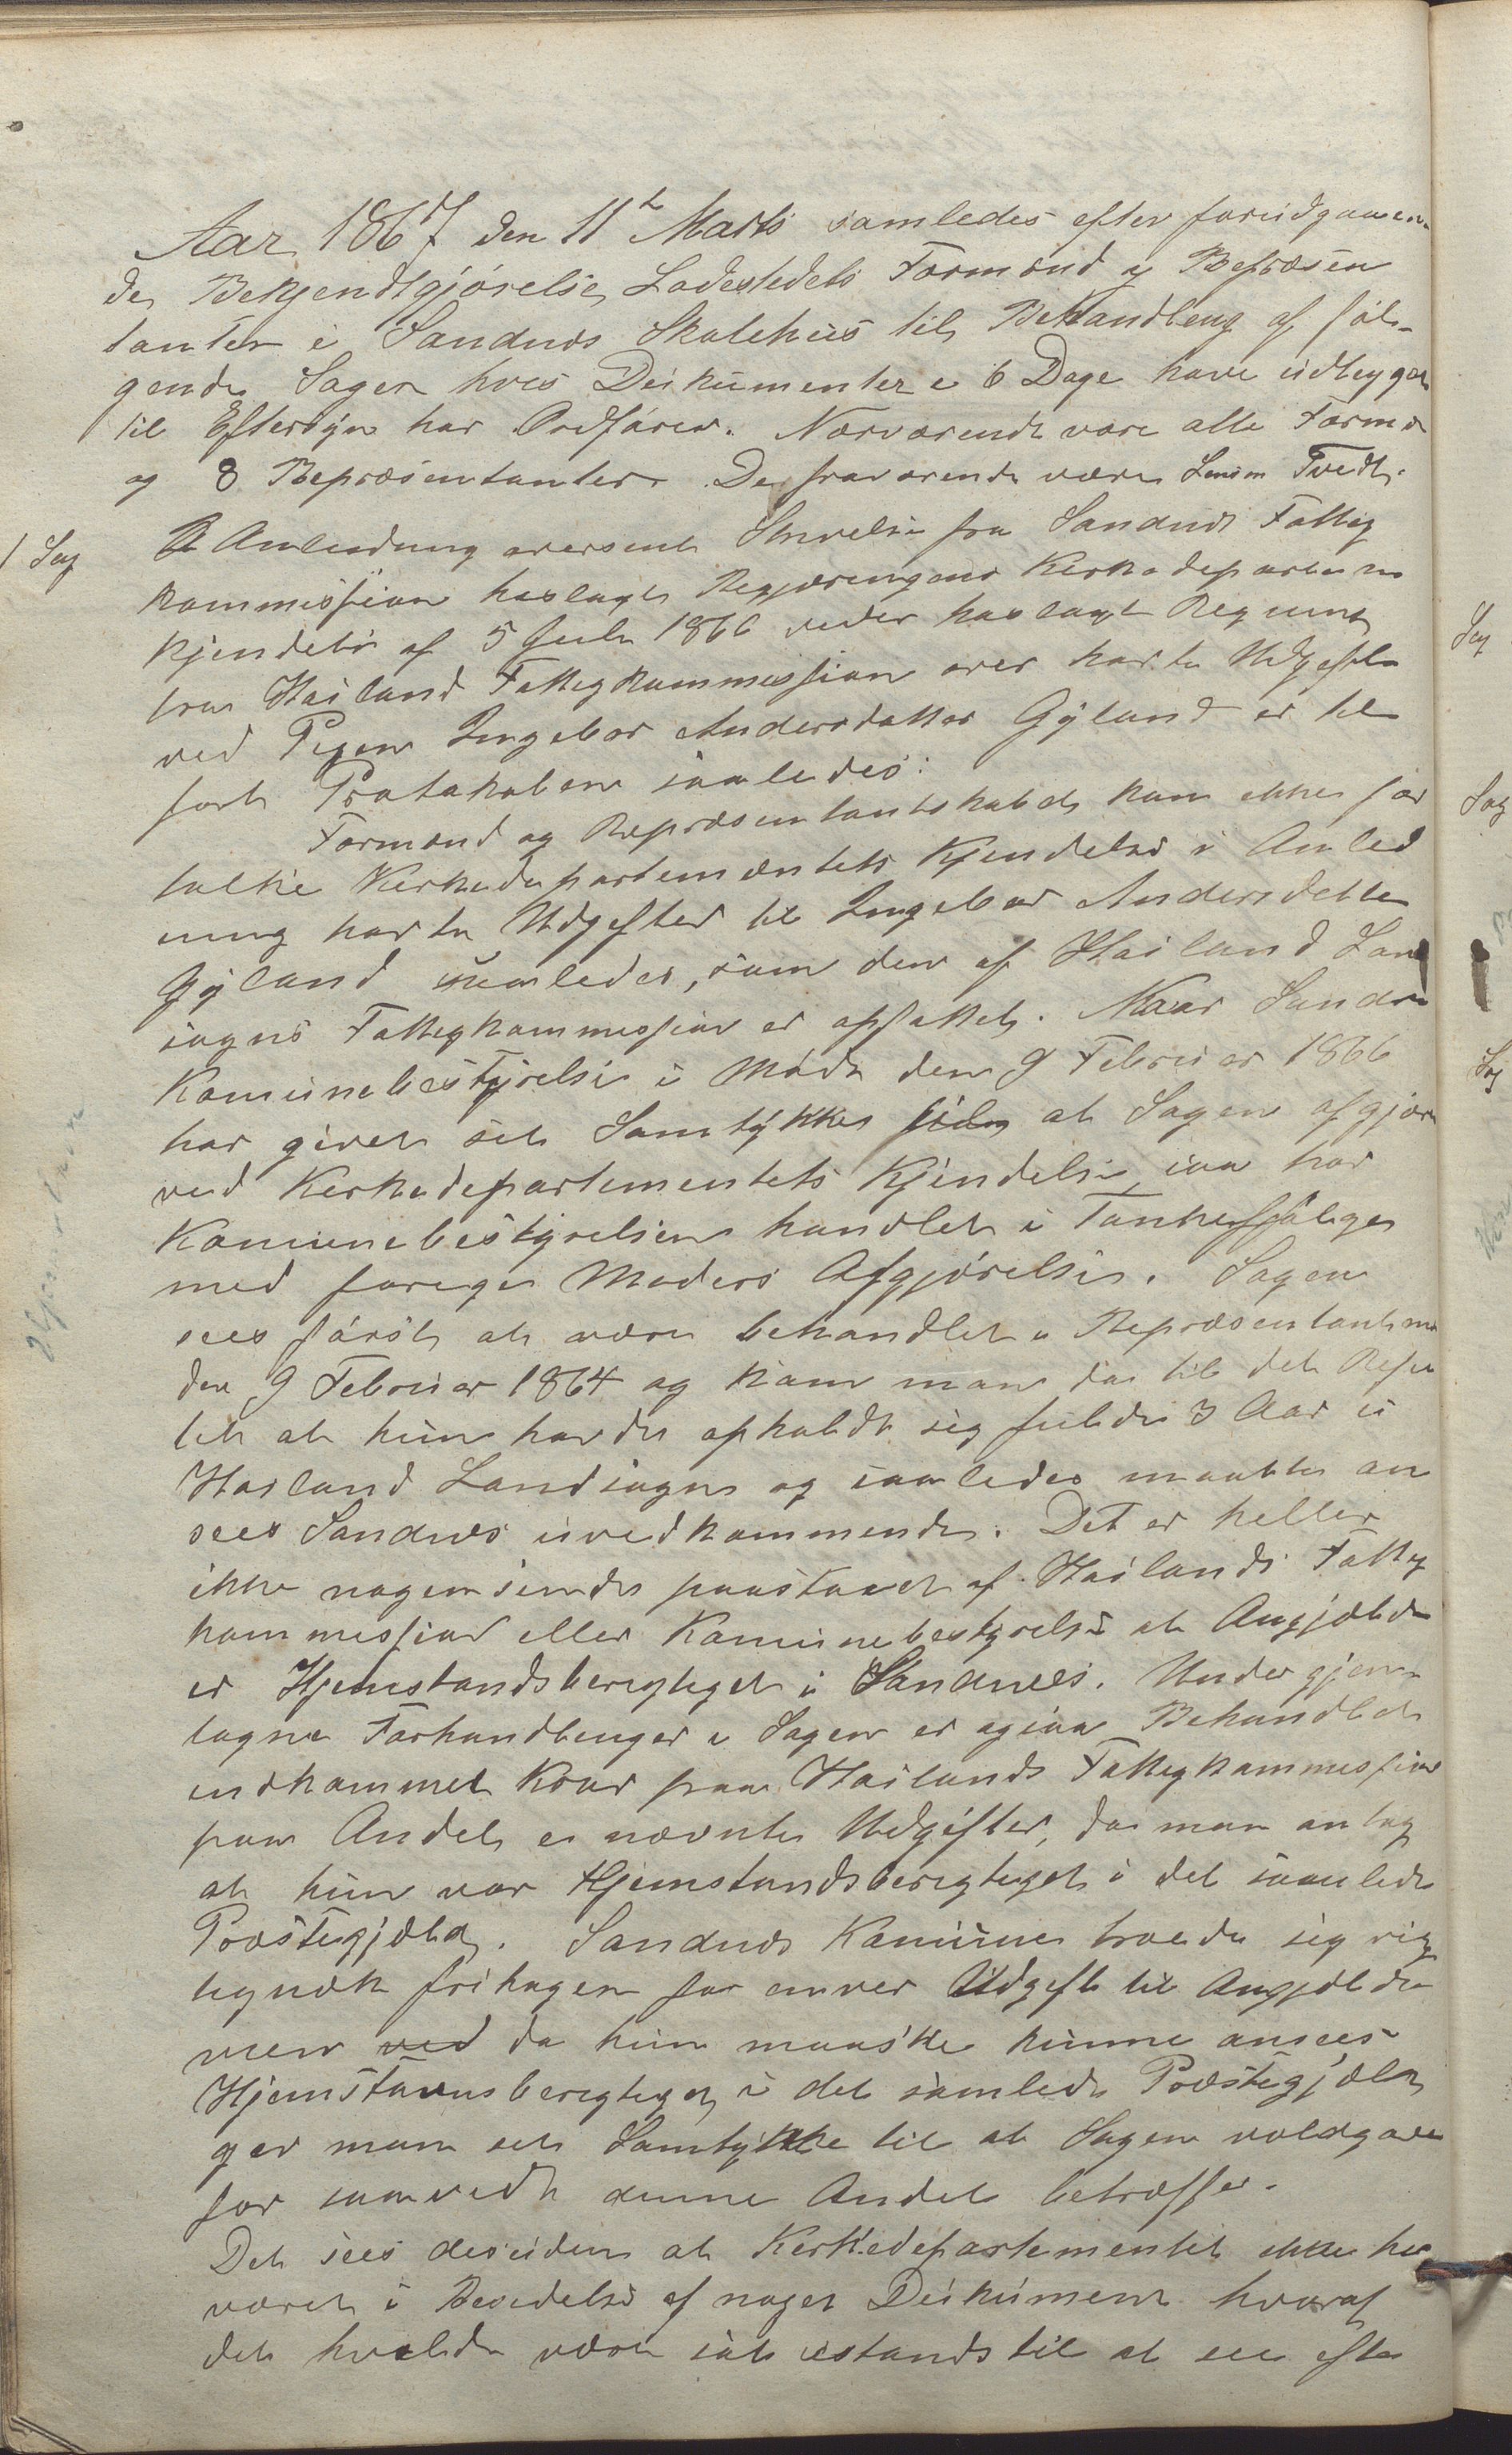 Aar 1867 den 11t Marts samledes efter forudgaaen-
de Bekjendtgjørelse Ladestedets Formænd og Repræsen
tanter i Sandnæs Skolehus til Behandling af føl-
gende Sager hvis Dokumenter i 6 Dage have udligget
til Eftersyn hos Ordføren. Nærværende vare alle Formd
og 8 Repræsentanter. De fraværende være Simon Tvedt.
1 Sag
I Anledning oversendt Skrivelse fra Sandnæs Fattig
kommission hoslagt Regjeringens Kirkedepartem
Kjendelse af 5 Juli 1866 hoslagt Regning
fra Høiland Fattigkommission over havte Udgifter
ved Pigen Ingebor Andersdatter Gyland er til
ført Protokolen saaledes:
Formænd og Repræsentantskabet kan ikke for
tolke Kirkedepartementets Kjendelse i Anled
ning havte Udgifter til Ingebor Andersdatter
Gyland saaledes, som den af Høiland Land
sogns Fattigkommission er opfattet. Naar Sandnæs
Komunebestyrelse i Møde den 9 Februar 1866
har givet sit Samtykke til at Sagen afgjøres
ved Kirkedepartementets Kjendelse, saa har
Komunebestyrelsen handlet i Tankefølge
med forrige Møders Afgjørelse. Sagen
sees først at være behandlet i Repræsentantmø
den 9 Februar 1864 og kom man da til det Resul
tat at hun havde opholdt sig fulde 3 Aar i
Høiland Landsogn og saaledes maatte an
sees Sandnæs uvedkommende. Det er heller
ikke nogensinde paastaaet af Høilands Fattig
kommission eller Komunebestyrelse at Angjældende
er Hjemstandsberigtiget i Sandnæs. Under gjen-
tagne Forhandlinger i Sagen er ogsaa Behandlet
indkommet Krav fra Høilands Fattigkommission
paa Andel i nævnte Udgifter, da man antog
at hun var Hjemstandsberigtiget i det samlede
Præstegjæld. Sandnæs Komune troede sig rig
tignok fritagen for enver Udgift til Angjældende
men ved da hun maaske kunne ansees
Hjemstavnsberigtiget i det samlede Præstegjæld
gav man sit Samtykke til at Sagen voldgaves
for saavidt denne Andel betræffer.
Det sees desuden at Kirkedepartementet ikke har
været i Besidelse af noget Dokument hvoraf
det kunde være sat istand til at see efter